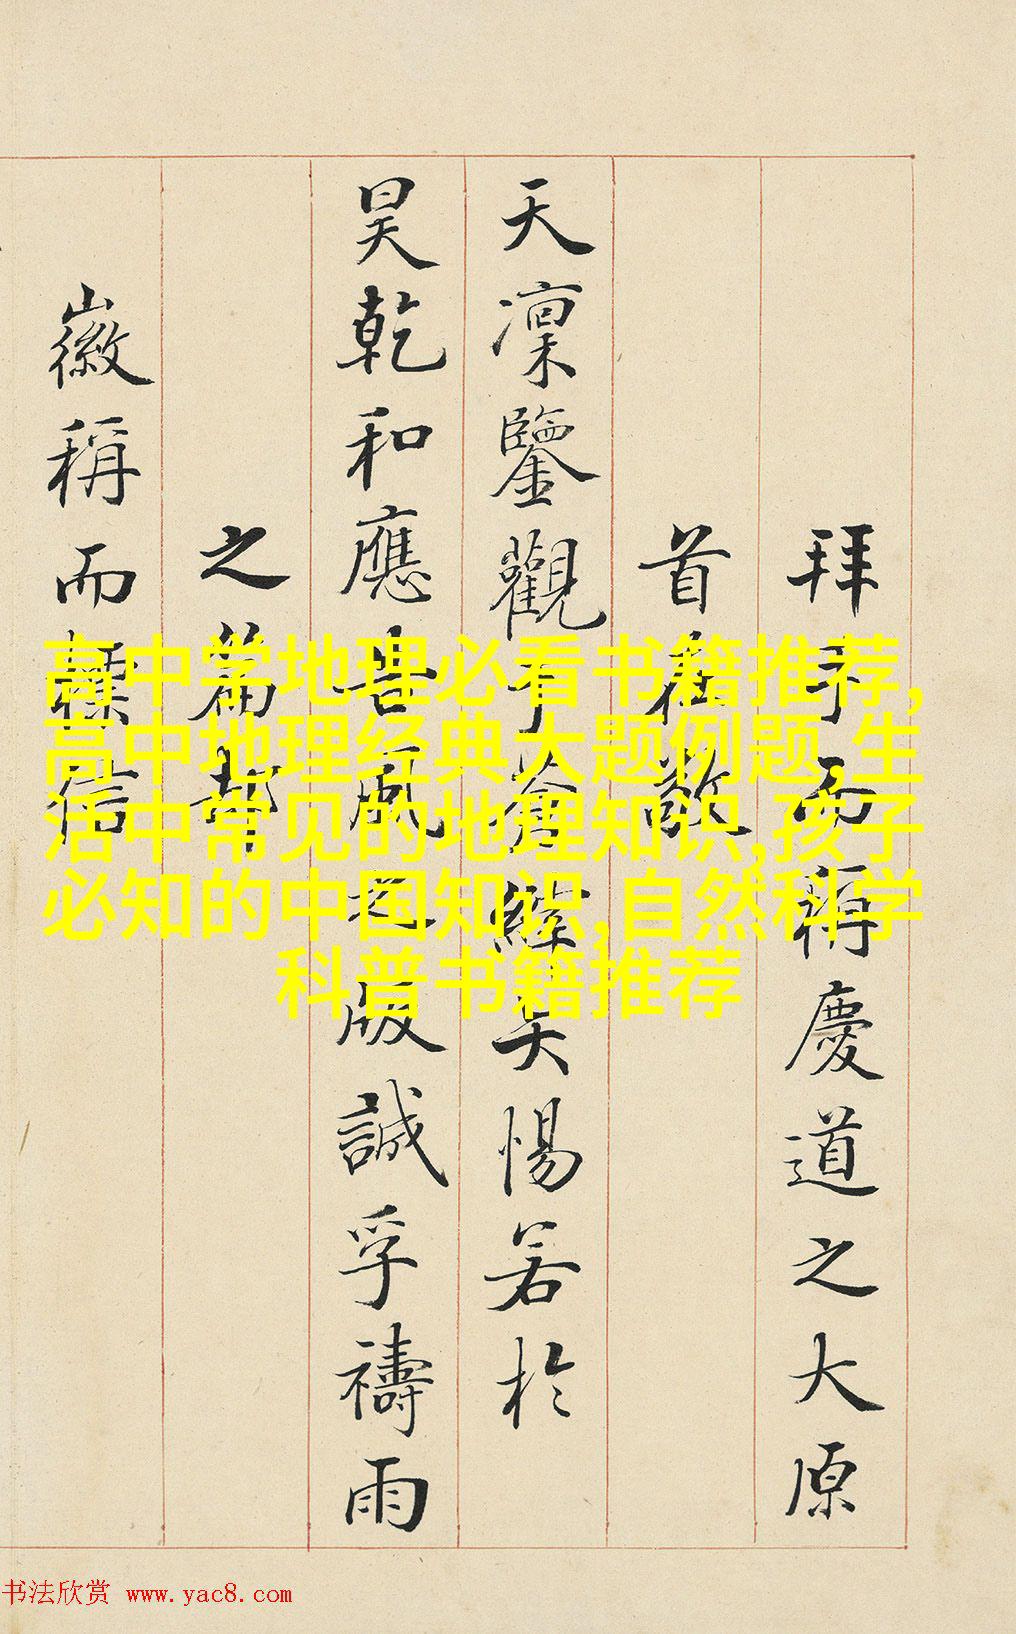 拜手而稱慶道之大原
首在敬
天凜鑒觀于蒼緯矢惕若於
昊乾和應告風之版誠孚禱雨
之篇
徽稱而信
高中学地理必看书籍推荐,
高中地理经典大题例题,生
活中常见的地理知识,孩子
必知的中国知识,自然科学
科普书籍推荐
书法欣赏 www.yac8.com